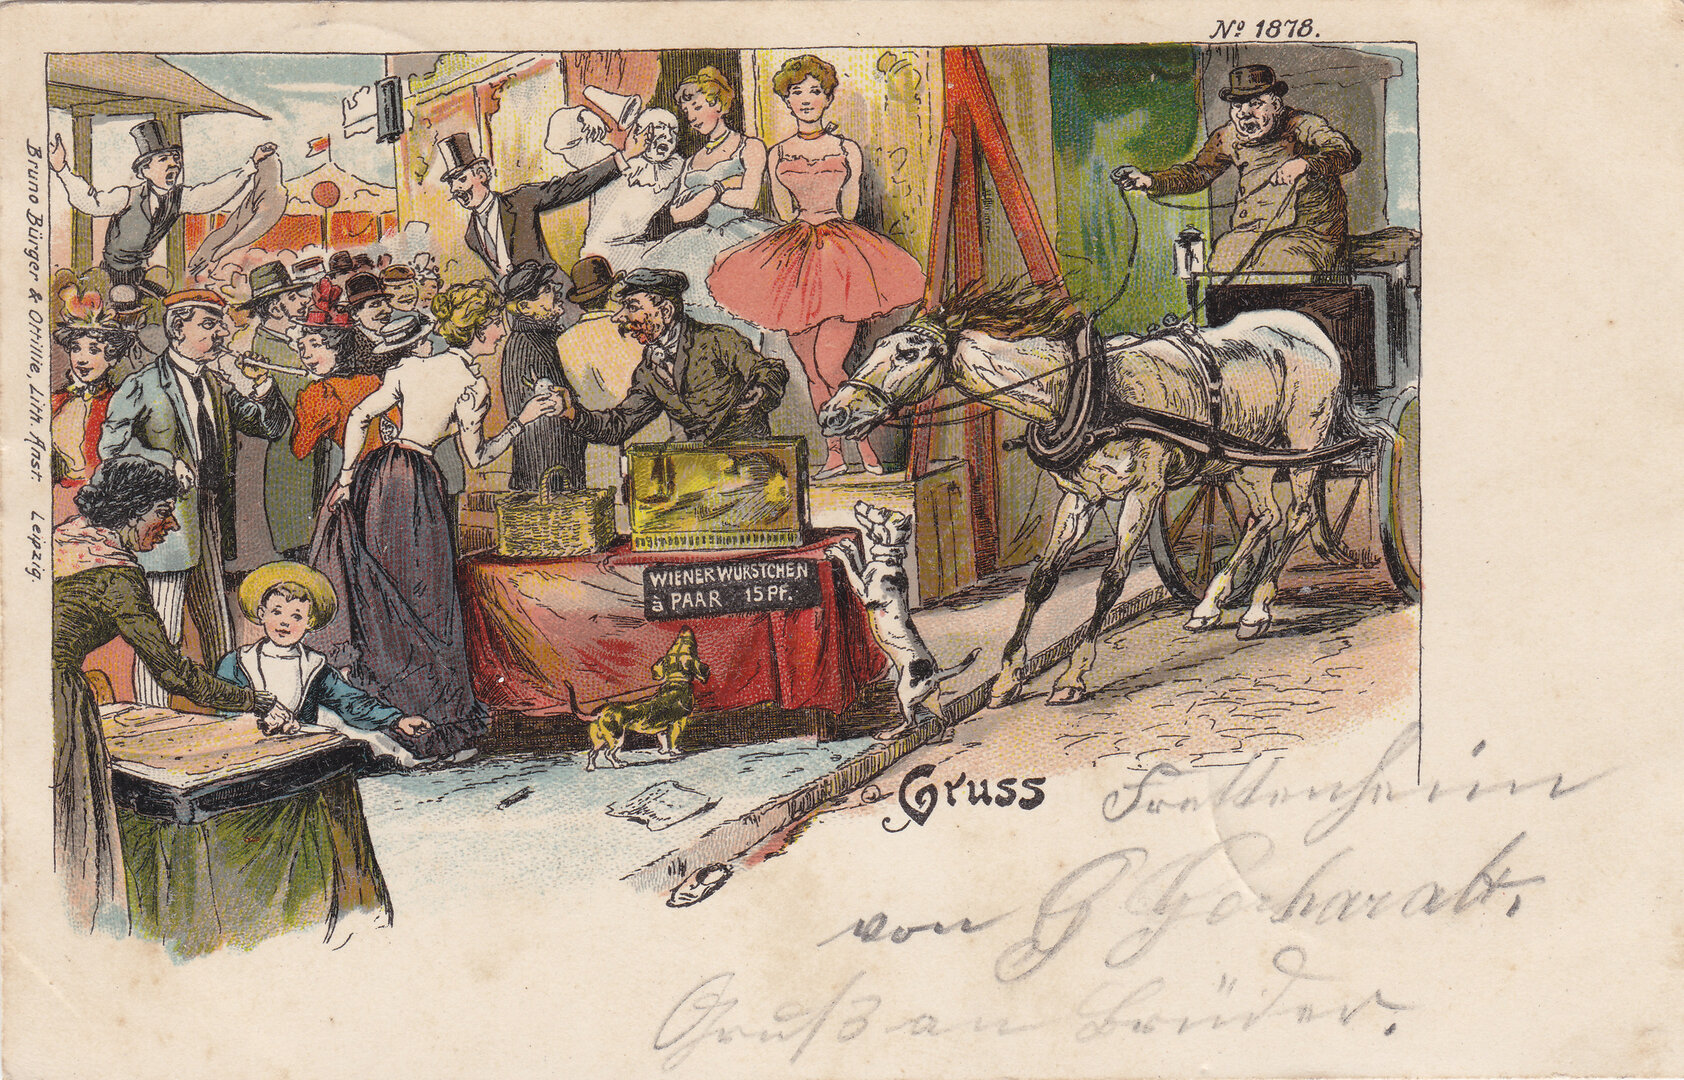 No 1878.
Bruno Bürger & Ottillie, Lith. Anst. Leipzig.
WIENER WÜRSTCHEN
à PAAR 15 PF.
Gruss Frettenheim
von G
Gruß an Brüder.